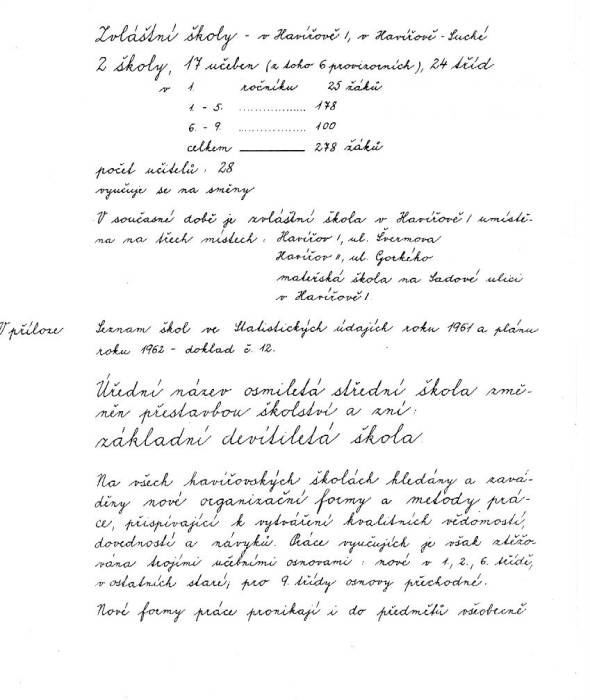 Zvláštní školy - v Havířově I, v Havířově - Suché
2 školy, 17 učeben (z toho 6 provizorních), 24 tříd
v 1. ročníku 25 žáků
1. - 5. .................. 178
6. - 9. .................. 100
celkem ________ 278 žáků
počet učitelů : 28
vyučuje se na směny
V současné době je zvláštní škola v Havířově I umístě-
na na třech místech : Havířov I, ul. Švermova
Havířov II, ul. Gorkého
mateřská škola na Sadové ulici
v Havířově I.
V příloze Seznam škol ve Statistických údajích roku 1961 a plánu
roku 1962 - doklad č. 12.
Úřední název osmiletá střední škola změ-
něn přestavbou školství a zní :
základní devítiletá škola.
Na všech havířovských školách hledány a zavá-
děny nové organizační formy a metody prá-
ce, přispívající k vytváření kvalitních vědomostí,
dovedností a návyků. Práce vyučujích je však ztěžo-
vána trojími učebními osnovami : nové v 1., 2., 6. třídě,
v ostatních staré, pro 9. třídy osnovy přechodné.
Nové formy práce pronikají i do předmětů všeobecně